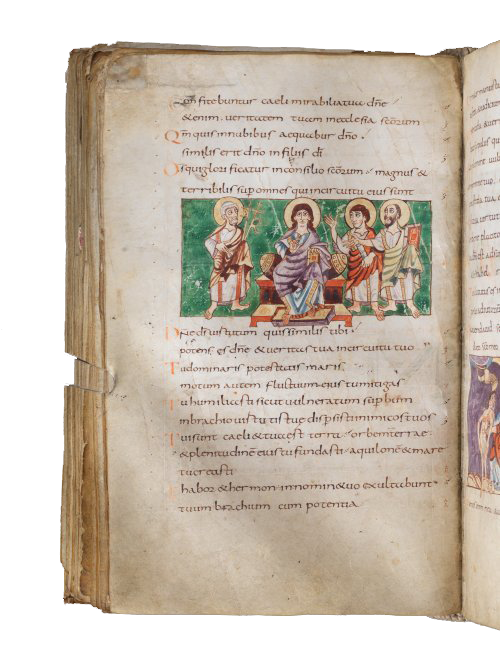 Confitebuntur caeli mirabilia tua dñe
& enim ueritatem tuam in ecclesia scōrum
Qm̄ quis in nubibus aequabur dño
similis erit dño in filiis dī
Ds qui glorificatur in consilio scōrum magnus &
terribilis sup omnes qui in circuitu eius sunt
Dñe ds uirtutum quis similis tibi
potens es dñe & ueritas tua in circuitu tuo
Tu dominaris potestatis maris
motum autem fluctuum eius tu mitigas
Tu humiliasti sicut uulneratum supbum
in brachio uirtutis tue dispsisti inimicos tuos
Tui sunt caeli & tua est terra orbem terrae
& plenitudinē eius tu fundasti aquilonē & mare
tu creasti
Thabor & hermon in nomine tuo exultabunt
tuum brachium cum potentia